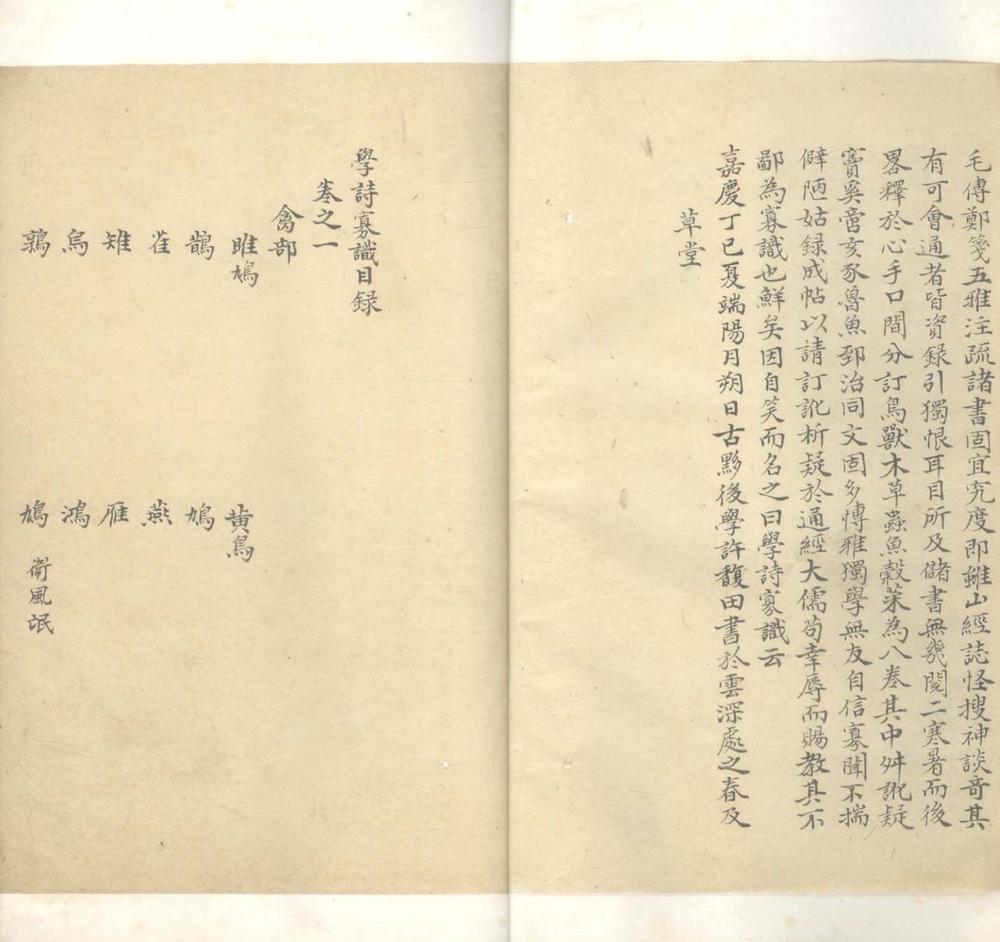 毛傳鄭箋五雅注疏諸書固宜究度即雖山經誌怪搜神談竒其
有可會通者皆資録引獨恨耳目所及儲書無幾閱二寒暑而後
畧釋於心手口間分訂鳥獸木草蟲魚穀菜為八卷其中舛訛疑
竇奚啻亥豕魯魚郅治同文固多博雅獨學無友自信寡聞不揣
僻陋姑録成帖以請訂訛析疑於通經大儒茍幸辱而賜教其不
鄙為寡識也鮮矣因自笑而名之曰學詩寡識云
嘉慶丁巳夏端陽月朔日古黟後學許馥田書於雲深處之春及
草堂
學詩寡識目録
卷之一
禽部
雎鳩 黄鳥
鵲 鳩
雀 燕
雉 雁
烏 鴻
鶉 鳩 衛風氓